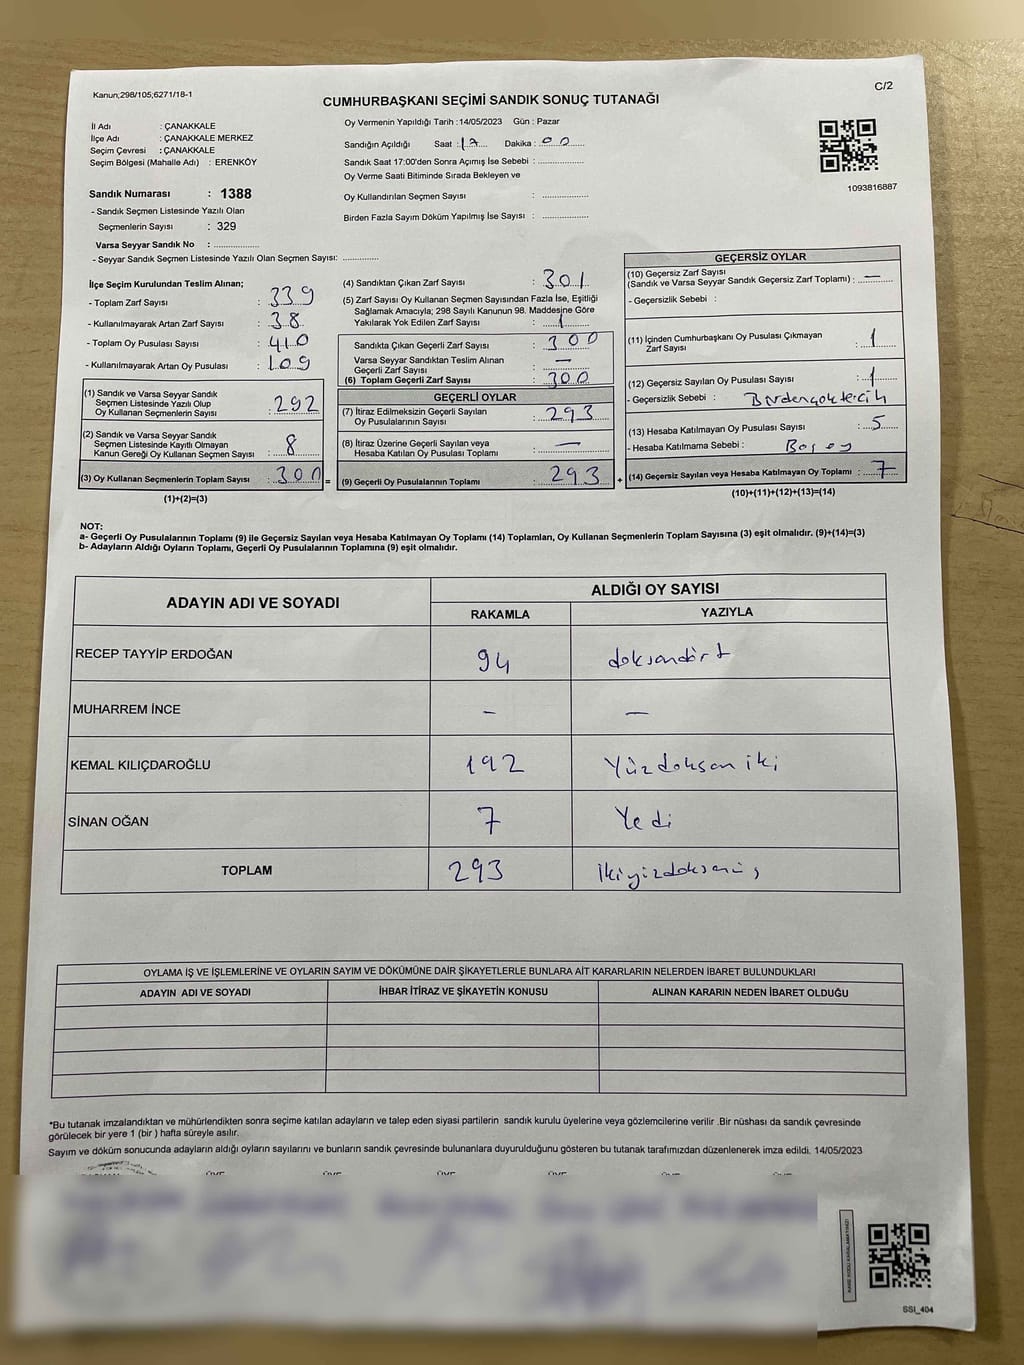 Kanun;298/105;6271/18-1
C/2
CUMHURBAŞKANI SEÇİMİ SANDIK SONUÇ TUTANAĞI
İl Adı : ÇANAKKALE
İlçe Adı : ÇANAKKALE MERKEZ
Seçim Çevresi : ÇANAKKALE
Seçim Bölgesi (Mahalle Adı) : ERENKÖY
Sandık Numarası : 1388
- Sandık Seçmen Listesinde Yazılı Olan
Seçmenlerin Sayısı : 329
Varsa Seyyar Sandık No : ..................
- Seyyar Sandık Seçmen Listesinde Yazılı Olan Seçmen Sayısı: ..............
Oy Vermenin Yapıldığı Tarih : 14/05/2023 Gün : Pazar
Sandığın Açıldığı Saat : 17 Dakika : 00
Sandık Saat 17:00'den Sonra Açımış İse Sebebi : ..................
Oy Verme Saati Bitiminde Sırada Bekleyen ve
Oy Kullandırılan Seçmen Sayısı : ..................
Birden Fazla Sayım Döküm Yapılmış İse Sayısı : ..................
1093816887
İlçe Seçim Kurulundan Teslim Alınan;
- Toplam Zarf Sayısı : 339
- Kullanılmayarak Artan Zarf Sayısı : 38
- Toplam Oy Pusulası Sayısı : 410
- Kullanılmayarak Artan Oy Pusulası : 109
(1) Sandık ve Varsa Seyyar Sandık
Seçmen Listesinde Yazılı Olup
Oy Kullanan Seçmenlerin Sayısı : 292
(2) Sandık ve Varsa Seyyar Sandık
Seçmen Listesinde Kayıtlı Olmayan
Kanun Gereği Oy Kullanan Seçmen Sayısı : 8
(3) Oy Kullanan Seçmenlerin Toplam Sayısı : 300 =
(1)+(2)=(3)
(4) Sandıktan Çıkan Zarf Sayısı : 301
(5) Zarf Sayısı Oy Kullanan Seçmen Sayısından Fazla İse, Eşitliği
Sağlamak Amacıyla; 298 Sayılı Kanunun 98. Maddesine Göre
Yakılarak Yok Edilen Zarf Sayısı : 1
Sandıkta Çıkan Geçerli Zarf Sayısı : 300
Varsa Seyyar Sandıktan Teslim Alınan
Geçerli Zarf Sayısı : —
(6) Toplam Geçerli Zarf Sayısı : 300
GEÇERLİ OYLAR
(7) İtiraz Edilmeksizin Geçerli Sayılan
Oy Pusulalarının Sayısı : 293
(8) İtiraz Üzerine Geçerli Sayılan veya
Hesaba Katılan Oy Pusulası Toplamı : —
(9) Geçerli Oy Pusulalarının Toplamı : 293 +
GEÇERSİZ OYLAR
(10) Geçersiz Zarf Sayısı
(Sandık ve Varsa Seyyar Sandık Geçersiz Zarf Toplamı) : —
- Geçersizlik Sebebi :
(11) İçinden Cumhurbaşkanı Oy Pusulası Çıkmayan
Zarf Sayısı : 1
(12) Geçersiz Sayılan Oy Pusulası Sayısı : 1
- Geçersizlik Sebebi : Birdençoktercih
(13) Hesaba Katılmayan Oy Pusulası Sayısı : 5
- Hesaba Katılmama Sebebi : Boş oy
(14) Geçersiz Sayılan veya Hesaba Katılmayan Oy Toplamı : 7
(10)+(11)+(12)+(13)=(14)
NOT:
a- Geçerli Oy Pusulalarının Toplamı (9) ile Geçersiz Sayılan veya Hesaba Katılmayan Oy Toplamı (14) Toplamları, Oy Kullanan Seçmenlerin Toplam Sayısına (3) eşit olmalıdır. (9)+(14)=(3)
b- Adayların Aldığı Oyların Toplamı, Geçerli Oy Pusulalarının Toplamına (9) eşit olmalıdır.
ADAYIN ADI VE SOYADI
ALDIĞI OY SAYISI
RAKAMLA YAZIYLA
RECEP TAYYİP ERDOĞAN 94 doksandört
MUHARREM İNCE - —
KEMAL KILIÇDAROĞLU 192 Yüzdoksan iki
SİNAN OĞAN 7 Yedi
TOPLAM 293 İkiyüzdoksanüç
OYLAMA İŞ VE İŞLEMLERİNE VE OYLARIN SAYIM VE DÖKÜMÜNE DAİR ŞİKAYETLERLE BUNLARA AİT KARARLARIN NELERDEN İBARET BULUNDUKLARI
ADAYIN ADI VE SOYADI İHBAR İTİRAZ VE ŞİKAYETİN KONUSU ALINAN KARARIN NEDEN İBARET OLDUĞU
*Bu tutanak imzalandıktan ve mühürlendikten sonra seçime katılan adayların ve talep eden siyasi partilerin sandık kurulu üyelerine veya gözlemcilerine verilir .Bir nüshası da sandık çevresinde
görülecek bir yere 1 (bir ) hafta süreyle asılır.
Sayım ve döküm sonucunda adayların aldığı oyların sayılarını ve bunların sandık çevresinde bulunanlara duyurulduğunu gösteren bu tutanak tarafımızdan düzenlenerek imza edildi. 14/05/2023
KARE KODU KARALAMAYINIZ!
SSI_404